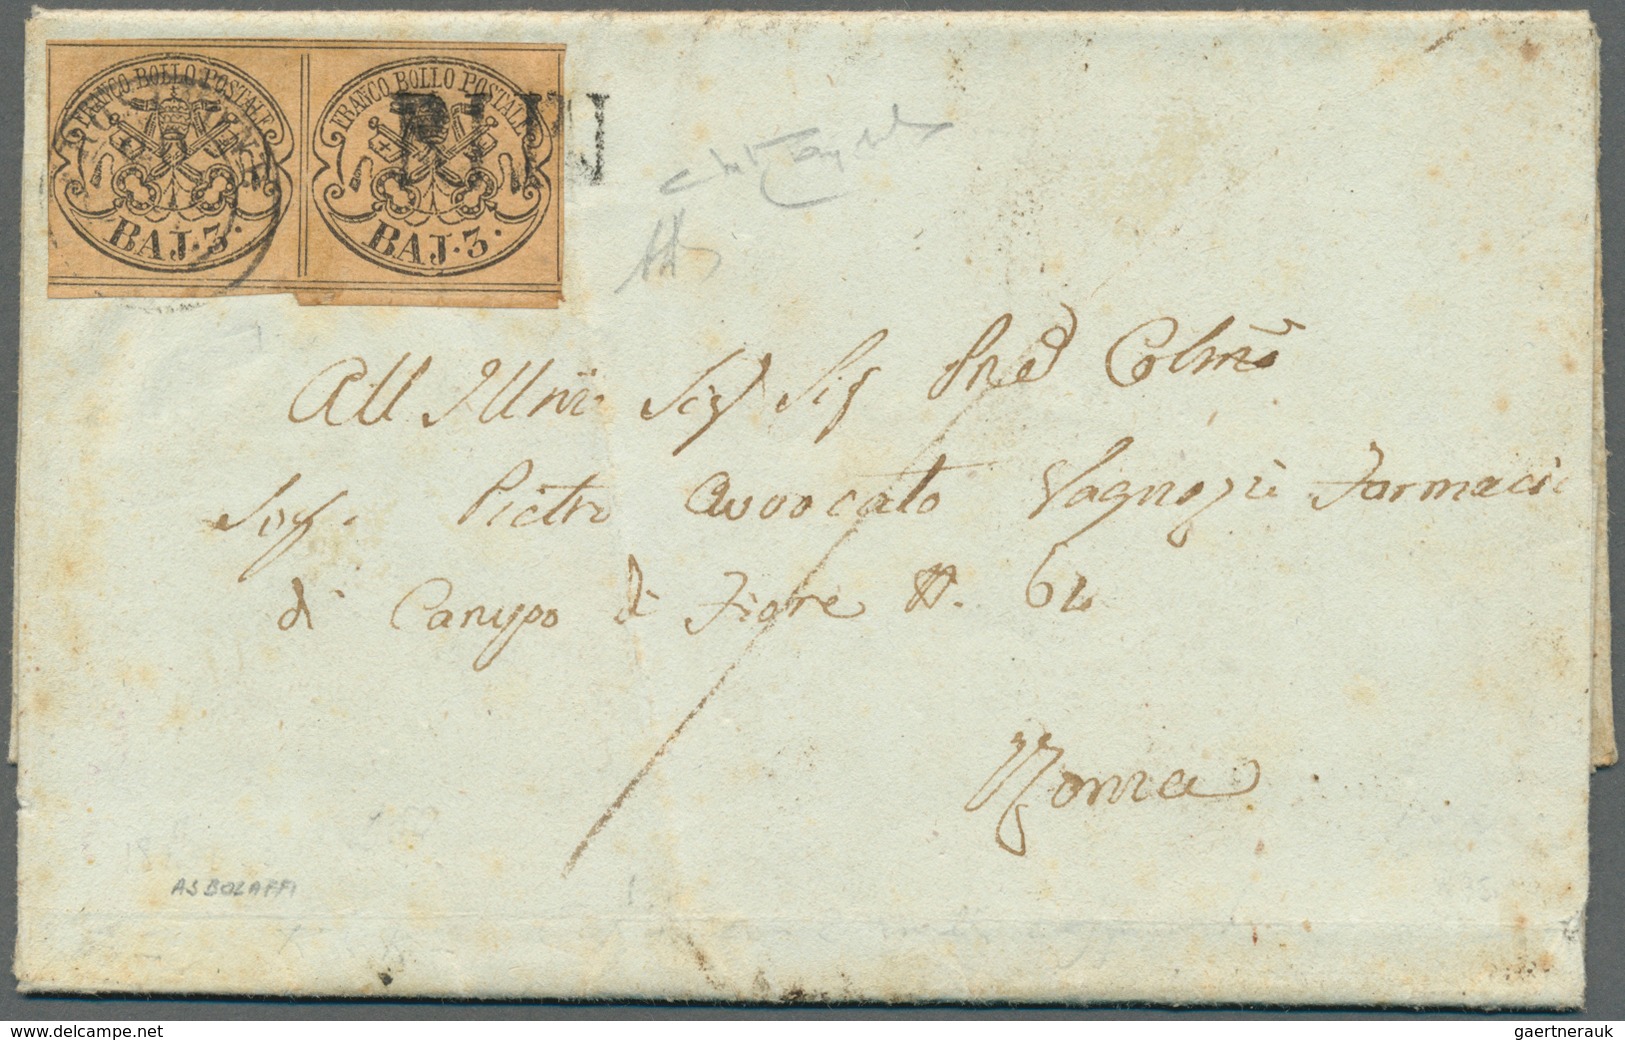 FRANCO BOLLO POSTALE FRANCO BOLLO POSTALE
BAJ. 3. BAJ. 3.
All Illmo Sig Sig Pne Colmo
Sig. Pietro Avvocato Vagnozzi Farmacia
di Campo di Fiore N. 62
Roma
ASBOLAFFI
gaertnerauk / www.delcampe.net